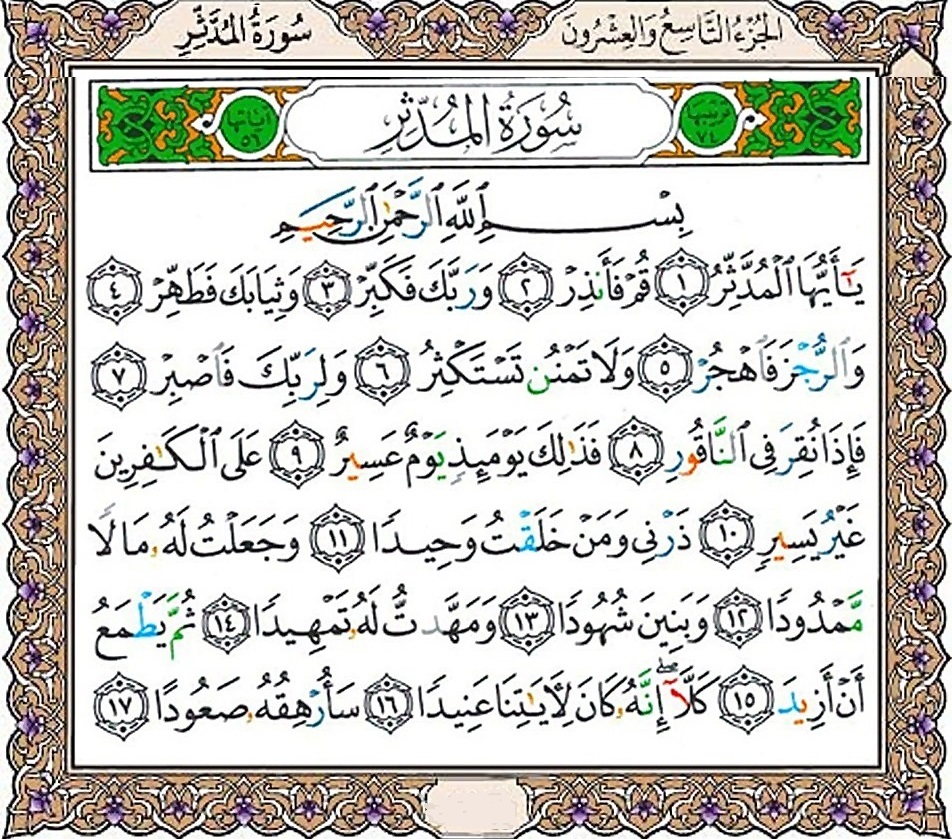 الجُزْءُ التَّاسِعُ وَالعِشْرُونَ سُورَةُ المُدَّثِّرِ
ترتيبها ٧٤ سُورَةُ المُدَّثِّرِ آياتها ٥٦
بِسْمِ ٱللَّهِ ٱلرَّحْمَٰنِ ٱلرَّحِيمِ
يَٰٓأَيُّهَا ٱلْمُدَّثِّرُ ١ قُمْ فَأَنذِرْ ٢ وَرَبَّكَ فَكَبِّرْ ٣ وَثِيَابَكَ فَطَهِّرْ ٤
وَٱلرُّجْزَ فَٱهْجُرْ ٥ وَلَا تَمْنُن تَسْتَكْثِرُ ٦ وَلِرَبِّكَ فَٱصْبِرْ ٧
فَإِذَا نُقِرَ فِى ٱلنَّاقُورِ ٨ فَذَٰلِكَ يَوْمَئِذٍ يَوْمٌ عَسِيرٌ ٩ عَلَى ٱلْكَٰفِرِينَ
غَيْرُ يَسِيرٍ ١٠ ذَرْنِى وَمَنْ خَلَقْتُ وَحِيدًا ١١ وَجَعَلْتُ لَهُۥ مَالًا
مَّمْدُودًا ١٢ وَبَنِينَ شُهُودًا ١٣ وَمَهَّدتُّ لَهُۥ تَمْهِيدًا ١٤ ثُمَّ يَطْمَعُ
أَنْ أَزِيدَ ١٥ كَلَّآ ۖ إِنَّهُۥ كَانَ لِءَايَٰتِنَا عَنِيدًا ١٦ سَأُرْهِقُهُۥ صَعُودًا ١٧